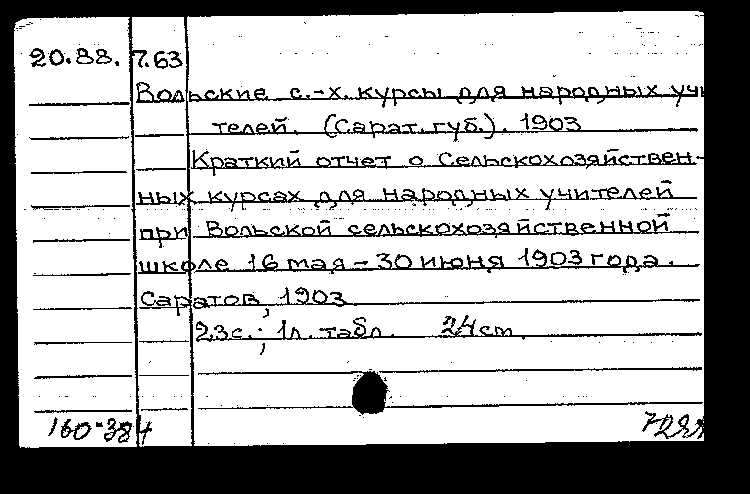 20.88. 7.63
Вольские с.-х. курсы для народных учи
телей. (Сарат. губ.). 1903
Краткий отчет о Сельскохозяйствен-
ных курсах для народных учителей
при Вольской сельскохозяйственной
школе 16 мая – 30 июня 1903 года.
Саратов, 1903
23с.; 1л. табл. 24 cm.
160-384